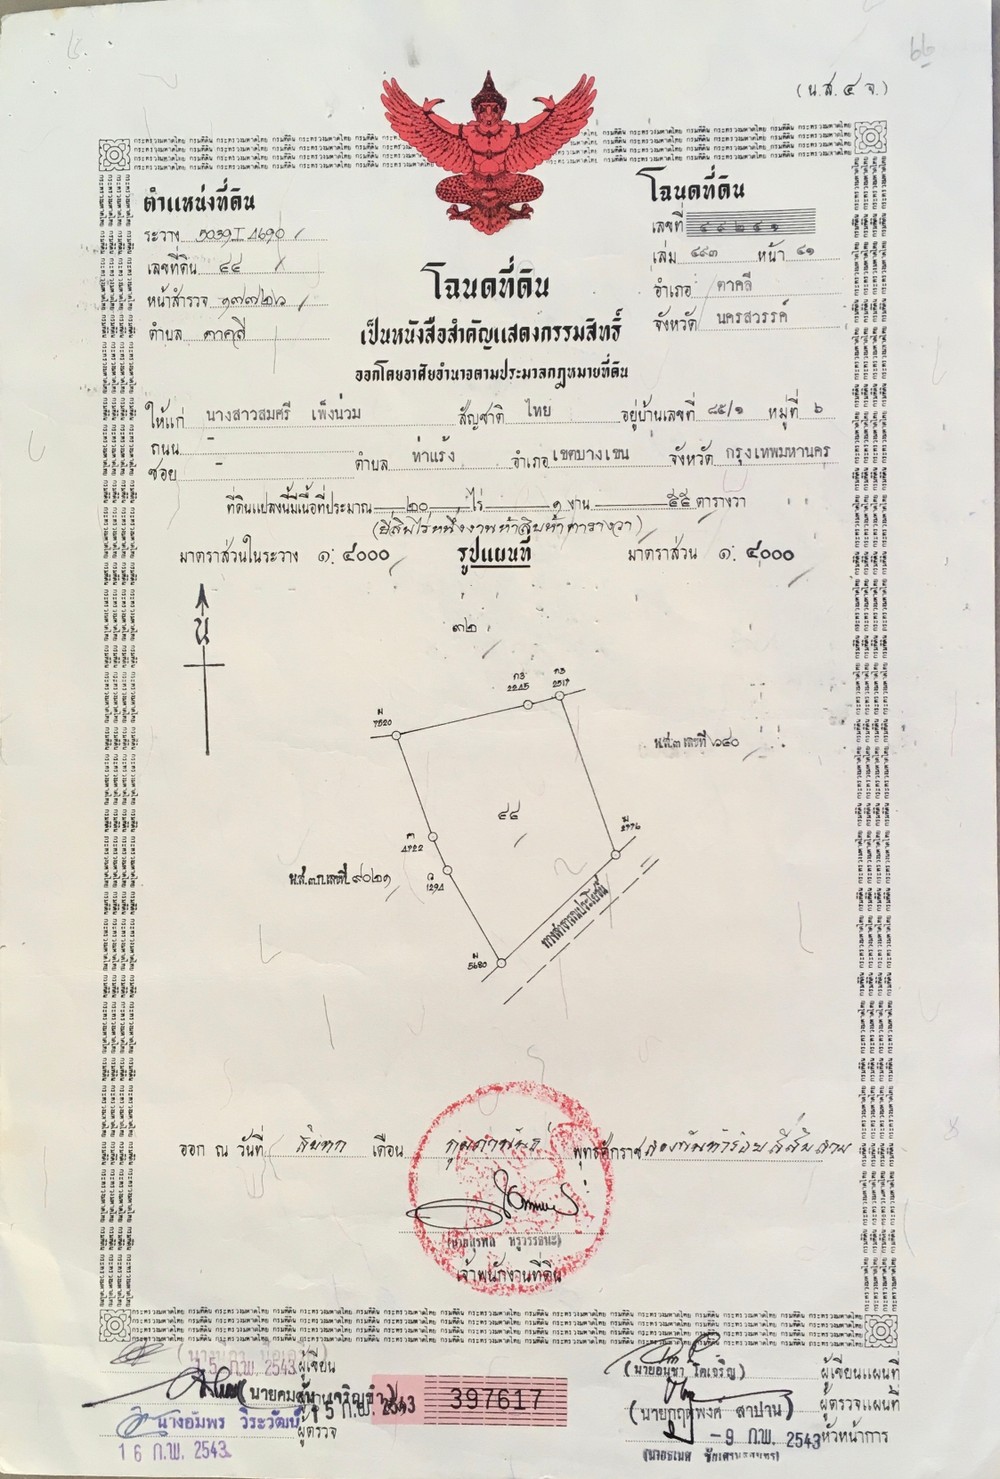 (น.ส. ๔ จ.)
ตำแหน่งที่ดิน
ระวาง 5039 I 4690
เลขที่ดิน ๔๔
หน้าสำรวจ ๑๗๗๒๖
ตำบล ตาคลี
โฉนดที่ดิน
เลขที่
เล่ม ๔๙๓ หน้า ๔๑
อำเภอ ตาคลี
จังหวัด นครสวรรค์
โฉนดที่ดิน
เป็นหนังสือสำคัญแสดงกรรมสิทธิ์
ออกโดยอาศัยอำนาจตามประมวลกฎหมายที่ดิน
ให้แก่ นางสาวสมศรี เพ็งน่วม สัญชาติ ไทย อยู่บ้านเลขที่ ๘๕/๑ หมู่ที่ ๖
ถนน -
ซอย - ตำบล ท่าแร้ง อำเภอ เขตบางเขน จังหวัด กรุงเทพมหานคร
ที่ดินแปลงนี้มีเนื้อที่ประมาณ ๒๐ ไร่ ๑ งาน ๕๕ ตารางวา
(ยี่สิบไร่หนึ่งงานห้าสิบห้าตารางวา)
มาตราส่วนในระวาง ๑: ๔๐๐๐ รูปแผนที่ มาตราส่วน ๑: ๔๐๐๐
น
๓๒
กร
2517
กร
ม
7520
น.ส.๓ เลขที่ ๖๔๐
๔๔
ม
2776
ต
4722
1294
น.ส.๓ ก.เลขที่ ๙๐๒๑
ทางสาธารณประโยชน์
ม
5680
ออก ณ วันที่ สิบหก เดือน กุมภาพันธ์ พุทธศักราช สองพันห้าร้อยสี่สิบสาม
เจ้าพนักงานที่ดิน
15 ก.พ. 2543 ผู้เขียน
15 ก.พ. 2543
นางอัมพร วีระวัฒน์ ผู้ตรวจ
16 ก.พ. 2543
397617
(นายอนุชา โตเจริญ) ผู้เขียนแผนที่
ผู้ตรวจแผนที่
(นายกฤตพงศ์ สาปาน)
- 9 ก.พ. 2543 หัวหน้าการ